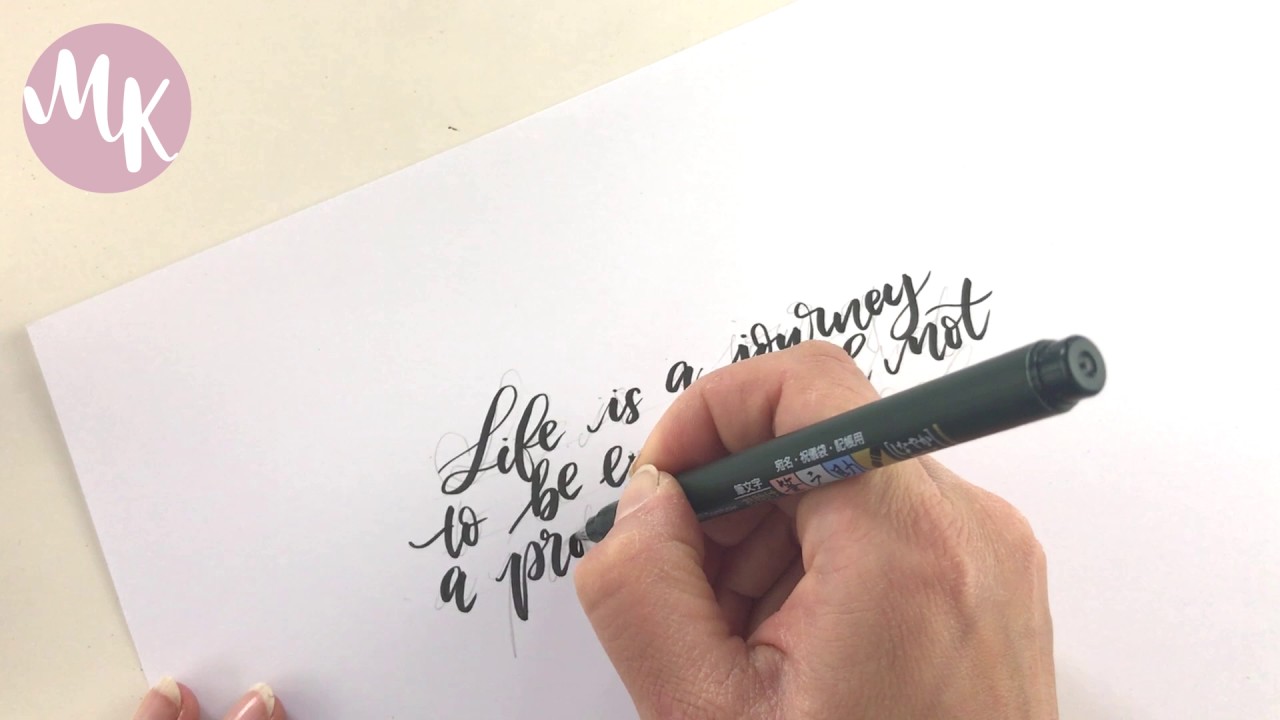 MK
Life is a journey
to be not
a pro
宛名・祝儀袋・記帳用
筆文字